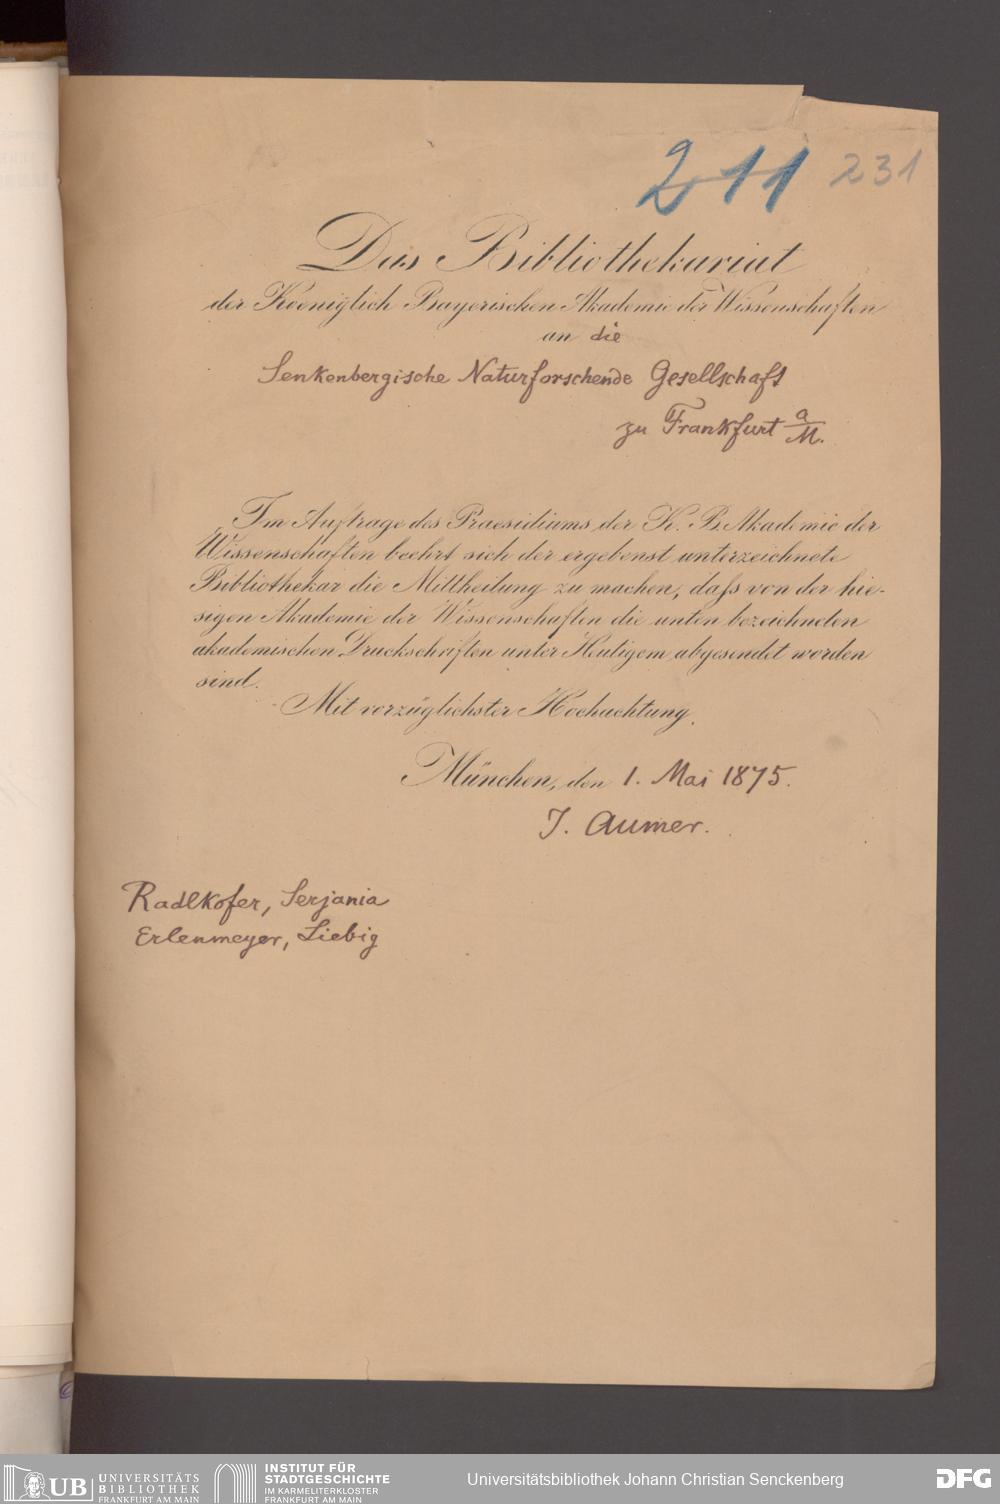 211 231
Das Bibliothekariat
der Koeniglich Bayerischen Akademie der Wissenschaften
an die
Senkenbergische Naturforschende Gesellschaft
zu Frankfurt a/M.
Im Auftrage des Praesidiums der K. B. Akademie der
Wissenschaften beehrt sich der ergebenst unterzeichnete
Bibliothekar die Mittheilung zu machen, dafs von der hie-
sigen Akademie der Wissenschaften die unten bezeichneten
akademischen Druckschriften unter Heutigem abgesendet worden
sind.
Mit vorzüglichster Hochachtung.
München, den 1. Mai 1875.
J. Aumer.
Radlkofer, Serjania
Erlenmeyer, Liebig
UB UNIVERSITÄTS
BIBLIOTHEK
FRANKFURT AM MAIN
INSTITUT FÜR
STADTGESCHICHTE
IM KARMELITERKLOSTER
FRANKFURT AM MAIN
Universitätsbibliothek Johann Christian Senckenberg
DFG